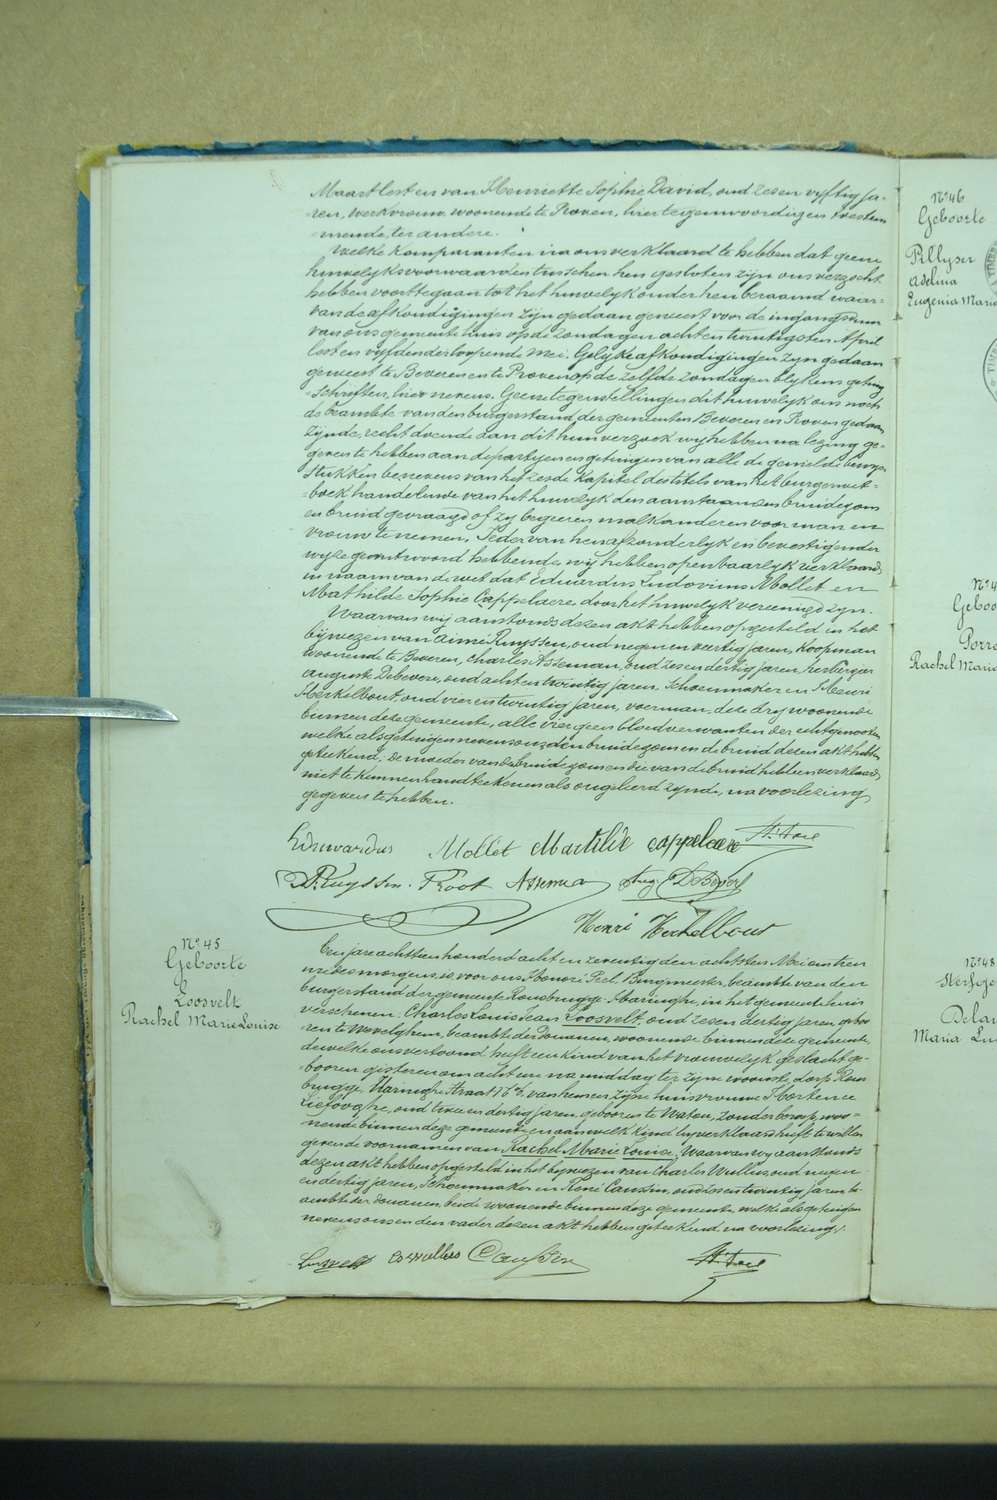 Maart lest en van Henriette Sophie David, oud zes en vyftig ja-
ren, werkvrouw, woonende te Proven, hier tegenwoordig en toestem
mende, ter andere.
Welke komparanten na ons verklaard te hebben dat geene
huwelyksvoorwaarden tusschen hen gesloten zyn ons verzocht
hebben voort te gaan tot het huwelyk onder hen beraamd waar-
van de afkondigingen zyn gedaan geweest voor de ingangdeur
van ons gemeentehuis op de zondagen acht en twintigsten April
lest en vyfden der loopende Mei. Gelyke afkondigingen zyn gedaan
geweest te Beveren en te Proven op de zelfde zondagen blykens getuig
schriften, hier nevens. Geene tegenstellingen dit huwelyk ons noch
de beambte van den burgerstand der gemeenten Beveren en Proven gedaan
zynde, recht doende aan dit hun verzoek wy hebben na lezing ge-
geven te hebben aan de partyen en getuigen van alle de gemelde
stukken benevens van het zesde kapitel des titels van het burgerwet-
boek handelende van het huwelyk den aanstaanden bruidegom
en bruid gevraagd of zy begeeren malkanderen voor man en
vrouw te nemen. Ieder van hen afzonderlyk en bevestigender
wyze geantwoord hebbende, wy hebben openbaarlyk verklaard,
in naam van de wet dat Eduardus Ludovinus Mollet en
Mathilde Sophie Cappelaere door het huwelyk vereenigd zyn.
Waarvan wy aanstonds dezen akt hebben opgesteld in het
bywezen van Aimé Ruyssen, oud negen en veertig jaren, koopman
woonende te Beveren, Charles Asseman, oud zes en dertig jaren, herbergier
Auguste Debevere, oud acht en twintig jaren, schoenmaker en Henri
Herkelbout, oud vier en twintig jaren, voerman, deze dry woonende
binnen deze gemeente, alle vier geen bloedverwanten der echtgenooten
welke als getuigen nevens ons den bruidegom en de bruid dezen akt hebben
geteekend, de moeder van de bruidegom en die van de bruid hebben verklaard
niet te kunnen handteekenen als ongeleerd zynde, na voorlezing
gegeven te hebben.
Edewardus Mollet Mathilde cappelaere
Ruyssen
Henri Herkelbout
N° 45
Geboorte
Loosvelt
Rachel Marie Louise
Een jare achttien honderd acht en zeventig den achtsten Mei om tien
ure des morgens, is voor ons Honoré Feel, Burgmeester, beambte van den
burgerstand der gemeente Rousbrugge-Haringhe, in het gemeentehuis
verschenen: Charles Louis Jean Loosvelt, oud zes en dertig jaren, geboo
ren te Wevelghem, beambte der Douanen, woonende binnen deze gemeente,
dewelke ons vertoond heeft een kind van het vrouwelyk geslacht ge-
booren gisteren om acht ure namiddag ter zyne woonste, dorp Rous
brugge, Haringhe straat, van hem en zyne huisvrouwe Hortence
Liefooghe, oud twee en dertig jaren, geboren te Watou, zonder beroep, woo-
nende binnen deze gemeente en aan welk kind hy verklaard heeft te willen
geven de voornamen van Rachel Marie Louise. Waarvan wy aanstonds
dezen akt hebben opgesteld in het bywezen van Charles Wullus, oud negen
en dertig jaren, schoenmaker en René Caussin, oud en twintig jaren be-
ambte der douanen, beide woonende binnen deze gemeente, welke als getuigen
nevens ons en den vader dezen akt hebben geteekend na voorlezing.
N° 46
Geboorte
Pillyser
Adelina
Eugenia Maria
Geboo
Porre
Rachel Marie
N° 48
Sterfge
Delar
Maria Lu